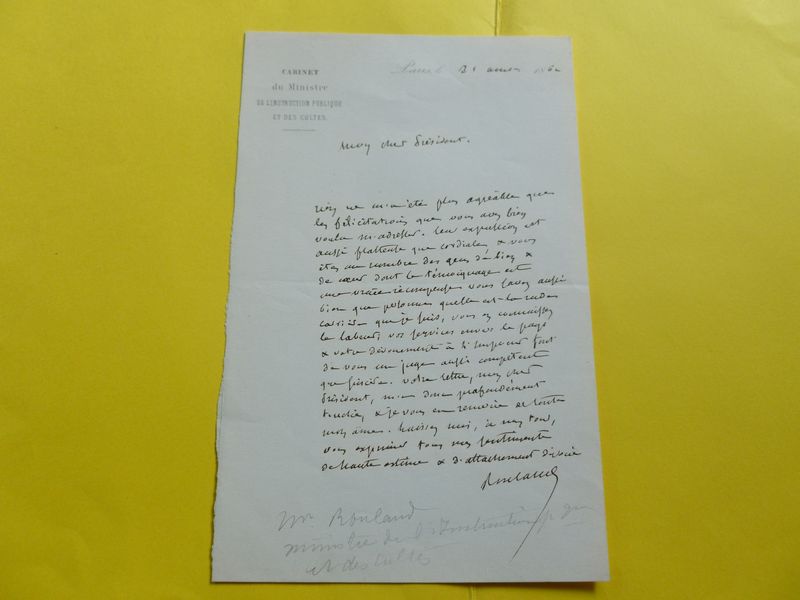 CABINET
du Ministre
DE L'INSTRUCTION PUBLIQUE
ET DES CULTES.
Mon cher Président.
Rien ne m'a été plus agréable que
les félicitations que vous avez bien
voulu m'adresser. Leur expression est
aussi flatteuse que cordiale, & vous
êtes au nombre des gens de bien &
de cœur dont le témoignage est
une vraie récompense. vous savez aussi
bien que personne quelle est la rude
carrière que je suis, vous en connaissez
le labeur; vos services envers le pays
& votre dévouement à l'Empereur font
de vous un juge aussi compétent
que sincère. votre lettre, mon cher
Président, m'a donc profondément
touché, & je vous en remercie de toute
mon âme. Laissez moi, à mon tour,
vous exprimer tous mes sentiments
de haute estime & d'attachement
Rouland
Mr Rouland
ministre de l'Instruction p
et des Cultes